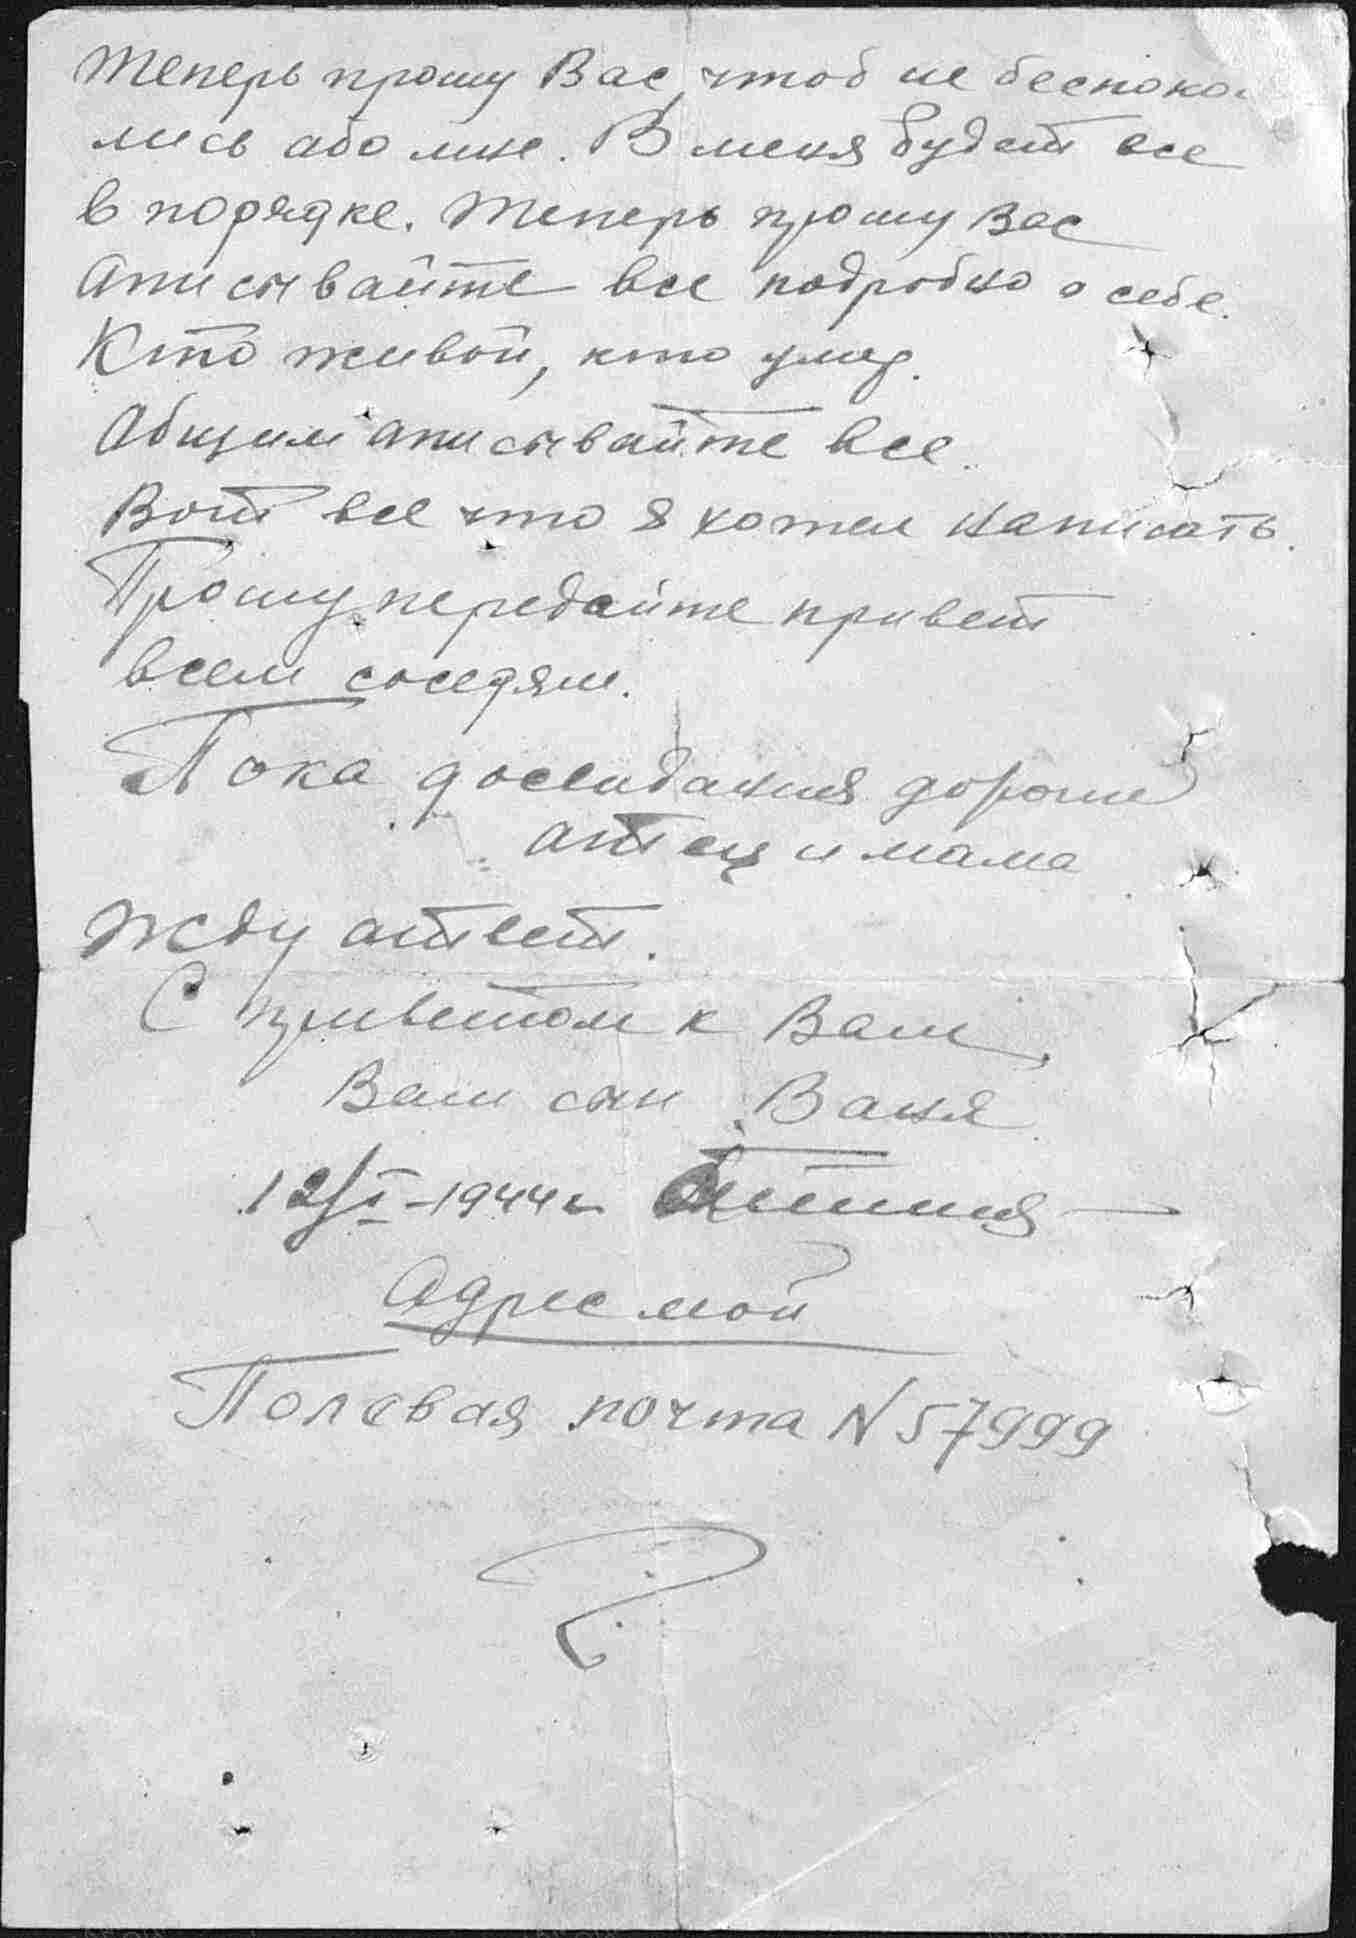 Теперь прошу Вас, чтоб не беспокои
лись або мне. В меня будет все
в порядке. Теперь прошу Вас
аписывайте все подробно о себе.
Кто живой, кто умер.
Абщим аписывайте все.
Вот все что я хотел написать.
Прошу передайте привет
всем соседям.
Пока досвидания дорогие
атец и мама
Жду атвет.
С приветом к Вам,
Ваш сын Ваня
12/I-1944г.
Адрес мой
Полевая почта N 57999